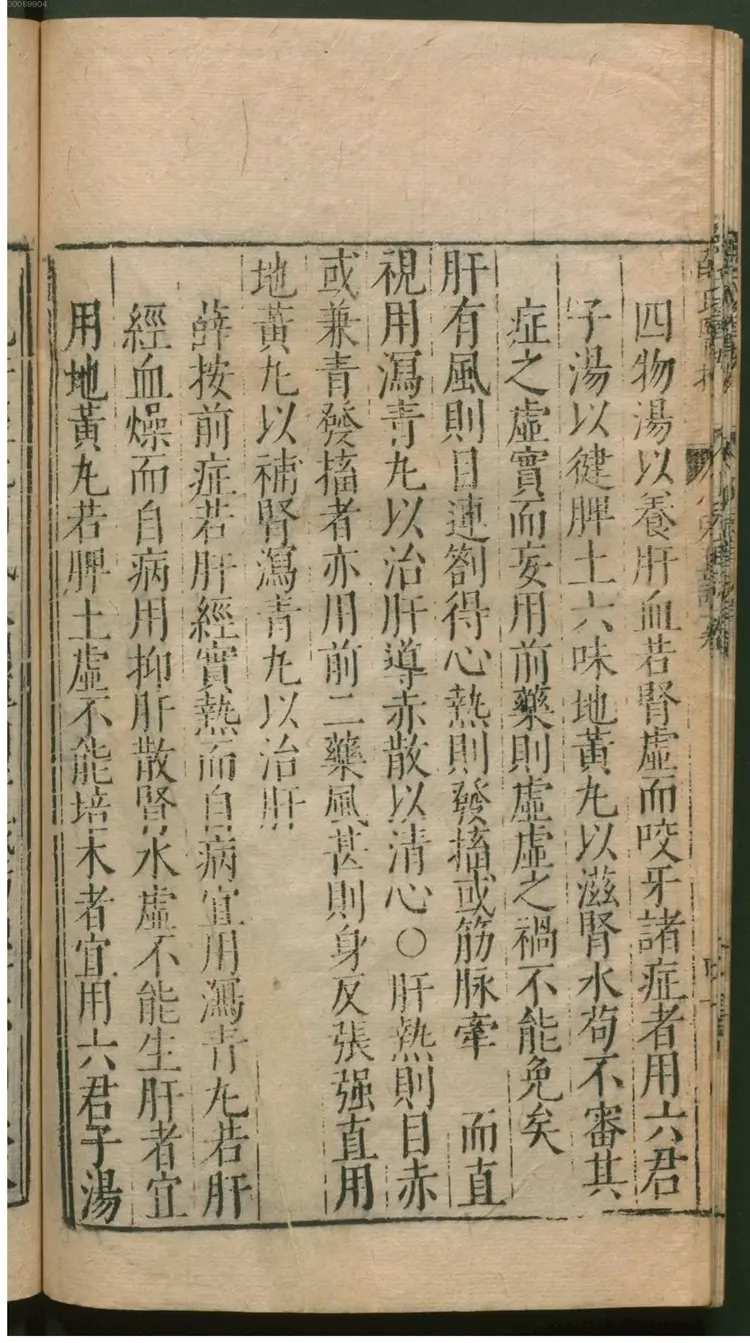 00069904
四物湯以養肝血若腎虛而咬牙諸症者用六君
子湯以健脾土六味地黃九以滋腎水苟不審其
症之虛實而妄用前藥則虛虛之禍不能免矣
肝有風則目連劄得心熱則發搐或筋脉牽 而直
視用瀉青九以治肝導赤散以清心○肝熱則目赤
或兼青發搐者亦用前二藥風甚則身反張强直用
地黃九以補腎瀉青九以治肝
薛按前症若肝經實熱而自病宜用瀉青九若肝
經血燥而自病用抑肝散腎水虛不能生肝者宜
用地黃九若脾土虛不能培木者宜用六君子湯